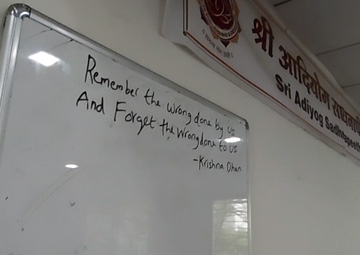 Remember the wrong done by us
And Forget the wrong done to us
-Krishna Dhan
श्री आदियोग
Sri Adiyog Sadhapeeth